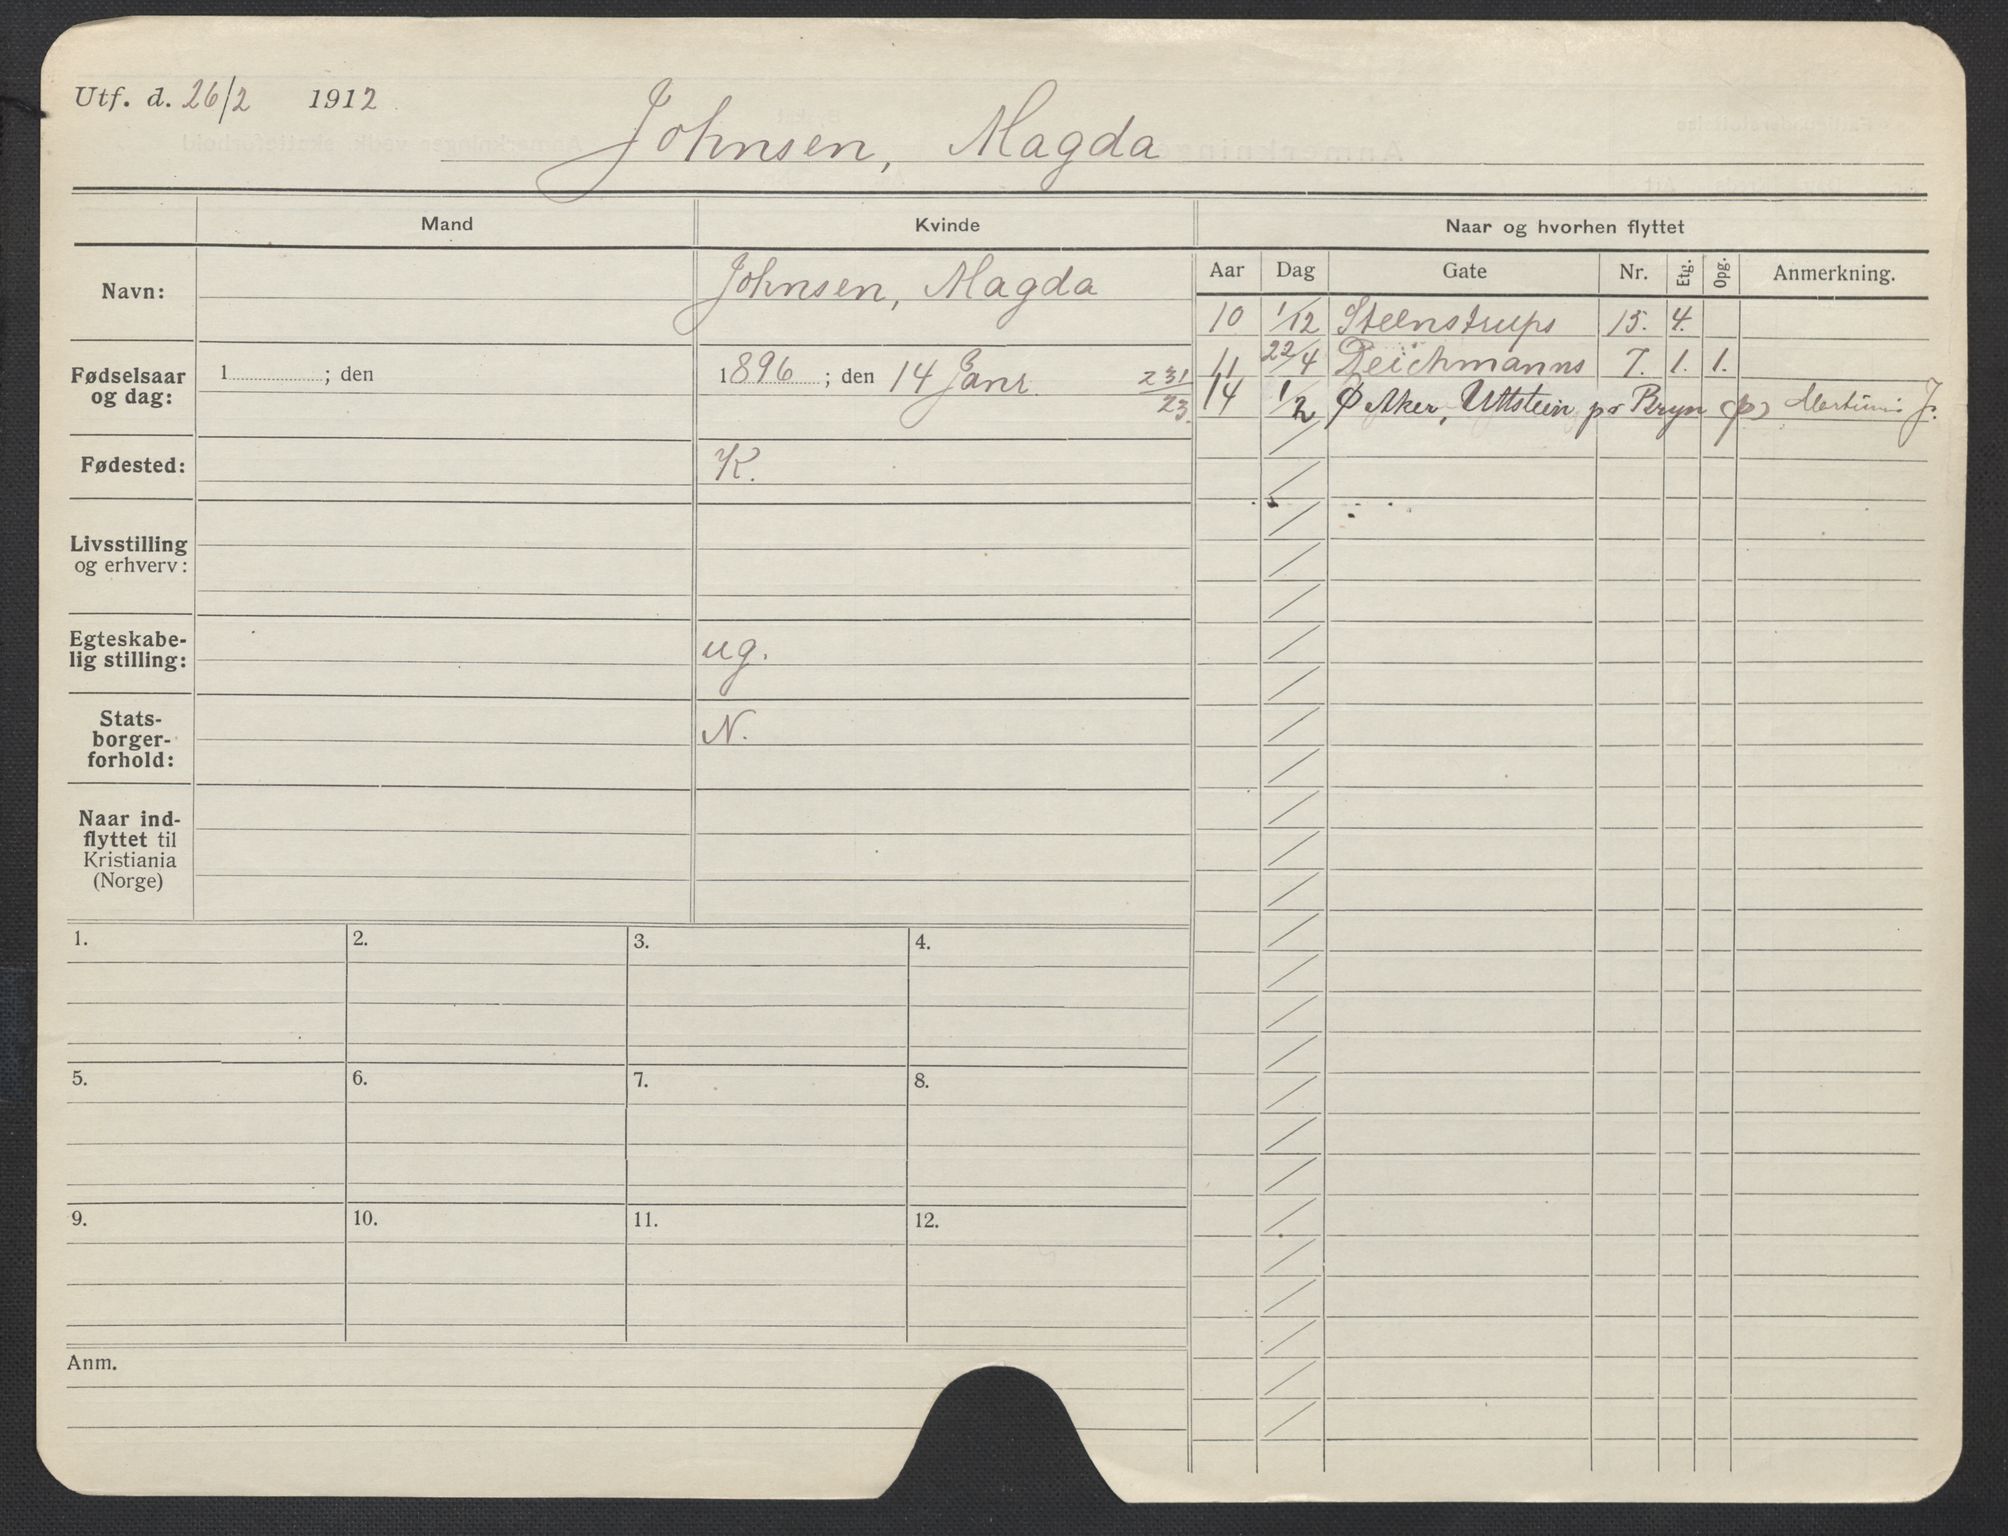 Utf. d. 26/2 1912
Johnsen, Magda
Mand
Kvinde
Naar og hvorhen flyttet
Navn:
Johnsen, Magda
Aar Dag Gate Nr. Etg. Opg. Anmerkning.
10 1/12 Steenstrups 15. 4.
11 22/4 Deichmanns 7. 1. 1.
14 1/2 Ø Aker, Uttstein pr Bryn
Fødselsaar
og dag:
1 ; den
1896 ; den 14 Janr.
231
23.
Fødested:
K.
Livsstilling
og erhverv:
Egteskabe-
lig stilling:
ug.
Stats-
borger-
forhold:
N.
Naar ind-
flyttet til
Kristiania
(Norge)
1. 2. 3. 4.
5. 6. 7. 8.
9. 10. 11. 12.
Anm.